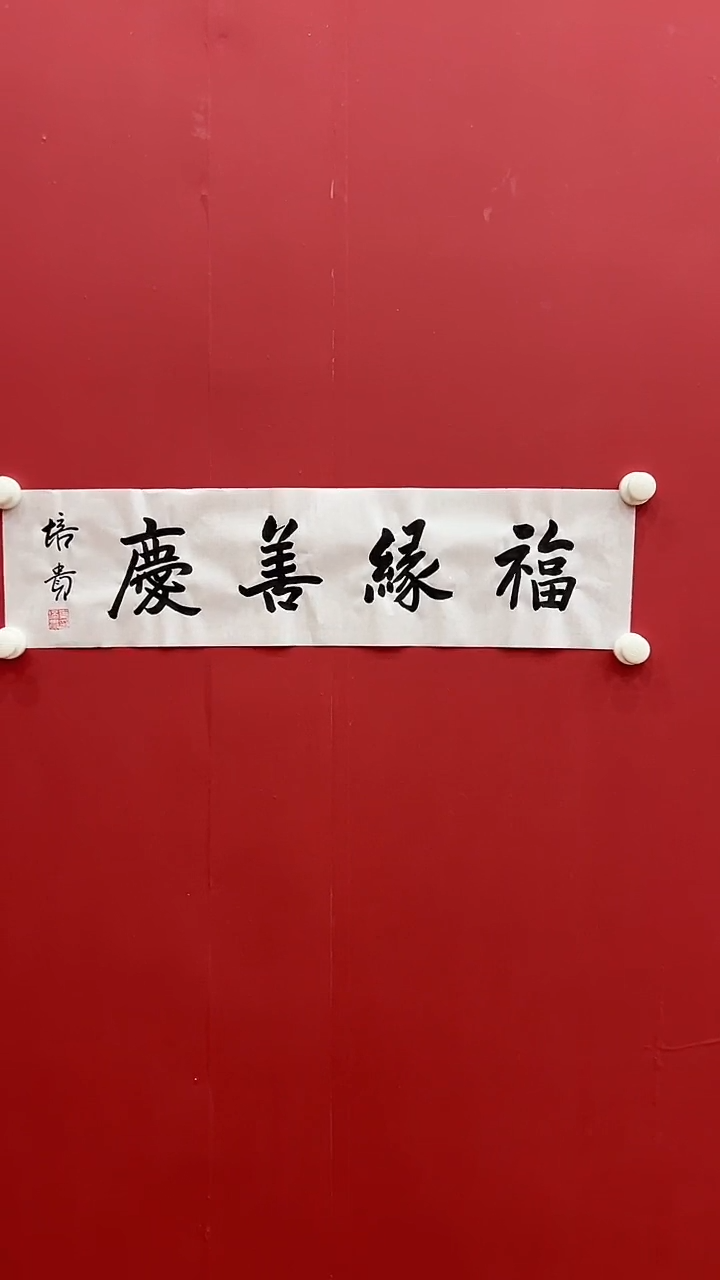 福緣善慶
培贵